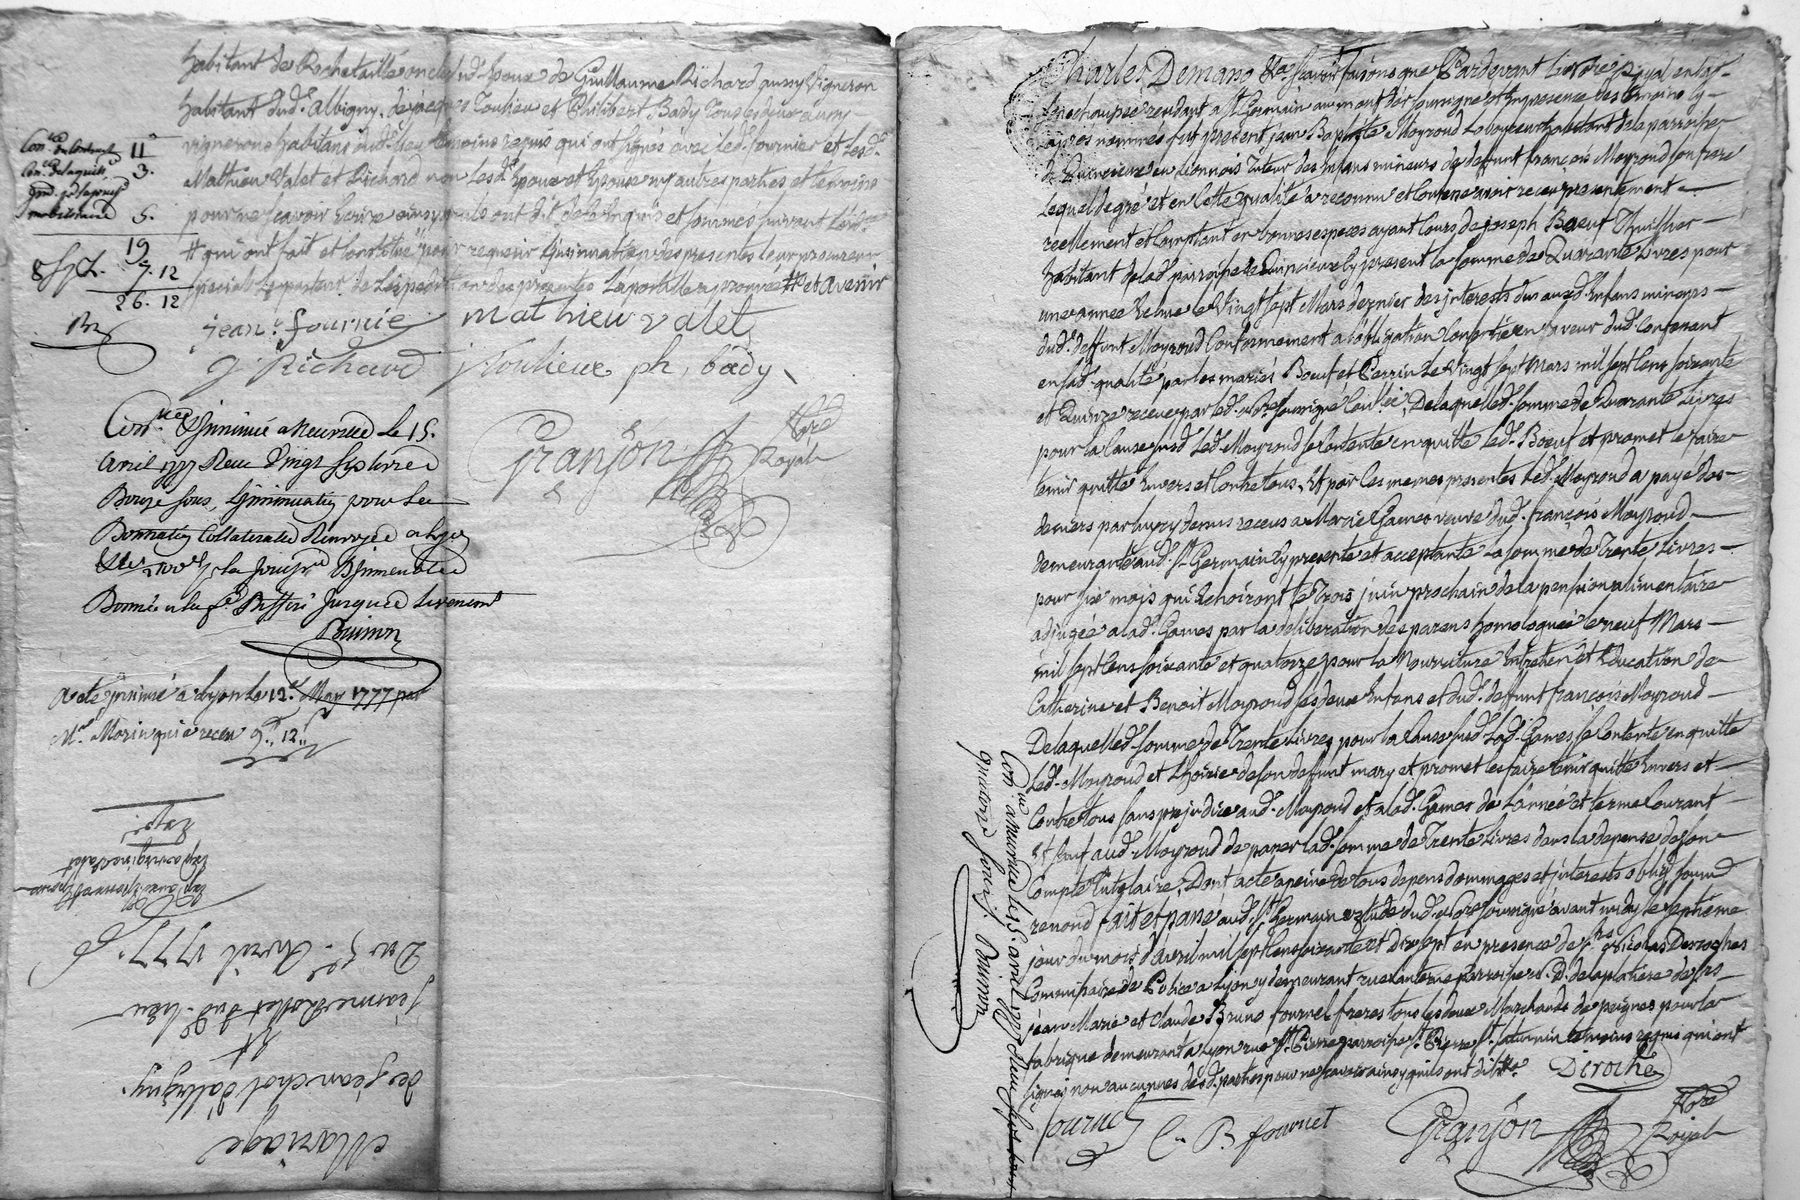 habitant de Rochetaillé oncle dud. Epoux de Guillaume Richard aussy vigneron
habitant dud. albigny, de jacques Toulieu et Philibert Bady tous deux aussy
vignerons habitans dud. lieu temoins requis qui ont signés avec led. fournier et lesd.
Mathieu Valet et Richard non lesd. Epoux et Epouse ny autres parties et temoins
pour ne scavoir Ecrire ainsy quils ont dit de ce Enquis et sommés suivant
# qui ont fait et constitué pour requerir Linsinuation des presentes leur procureur
special Le porteur de L'expedition des presentes La postille approuvée # et avenir
11
3.
mobiliaire 5.
19
7. 12
26. 12
jean fournie mathieu valet
g Richard j Toulieux ph, bady
Granjon Nre Royal
Con. et Insinué a Neuville Le 15.
avril 1777 Recu Vingt six livres
Douze sous, Linsinuation pour La
Donnation Collateralle Renvoyée a Lyon
Donnée a la
Buinon
acte insinué a Lyon Le 12. May 1777 par
Mr. Morin qui a recu 12
Mariage
de jean chol d'albigny
Et
jeanne Vallet dud. lieu
Du 5e. Avril 1777.
Charles Demano Scavoir faisons que Pardevant Le Nore Royal en la
senechaussée residant a St. Germain au mont d'or soussigné et En presence des temoins cy
apres nommés fut present jean Baptiste Moyroud Laboureur habitant de la parroisse
de Quincieux en Lionnois Tuteur des Enfans mineurs de deffunt francois Moyroud son frere
Lequel de gré et en cette qualité a reconnu et confessé avoir receu presentement
reellement et comptant en bonnes especes ayant cours de joseph Boeuf Thuillier
habitant de lad. parroisse de Quincieux cy present la somme de Quarante Livres pour
une année Echue le Vingt sept Mars dernier des interests dus auxd. Enfans mineurs
dud. deffunt Moyroud Conformement a l'obligation Consentie en faveur dud. Confessant
en lad. qualité par les mariés Boeuf et Perrin Le Vingt sept Mars mil sept cens soixante
et Quinze receue par led. Nre. soussigné Cont.lée, De laquelle d. somme de Quarante Livres
pour la cause susd. Led. Moyroud se Contente en quitte led. Boeuf et promet le faire
tenir quitte Envers et Contre tous, Et par les memes presentes Led. Moyroud a payé des
deniers par luy cy dessus receus a Marie Games veuve dud. francois Moyroud
demeurante aud. St. Germain cy presente et acceptante la somme de Trente Livres
pour six mois qui Echoiront le Trois juin prochain de la pension alimentaire
adjugée a lad. Games par la deliberation des parens homologuée le neuf Mars
mil sept cens soixante et quatorze pour la Nourriture Entretien et Education de
Catherine et Benoit Moyroud ses deux Enfans et dud. deffunt francois Moyroud
De laquelle d. somme de Trente Livres pour la Cause susd. Lad. Games se Contente en quitte
Led. Moyroud et L'hoirie de son deffunt mary et promet les faire tenir quitte Envers et
Contre tous sans prejudice aud. Moyroud et a lad. Games de L'année et terme Courant
Et sauf aud. Moyroud de passer lad. somme de Trente Livres dans la depense de son
Compte Tutelaire, Dont acte a peine de tous depens dommages et interests oblig. soum.
renond. fait et passé aud. St. Germain Etude dud. Nore soussigné avant midy le septieme
jour du mois d'avril mil sept cens soixante et dix sept en presence de Nicolas Desroches
Commissaire de Police a Lyon y demeurant rue Lanterne parroisse N. D. de la platiere de
jean Marie et Claude Bruno fournel freres tous les deux Marchands de peignes pour la
fabrique demeurant a Lyon rue St. Pierre parroisse St. Pierre St. Saturnin temoins requis qui ont
signé non aucunes desd. parties pour ne scavoir ainsy quils ont dit
Deroche
fournel C. B. fournel Granjon Nore Royal
Con. a Neuville Le 15. avril 1777 Recu sept sous
Buinon